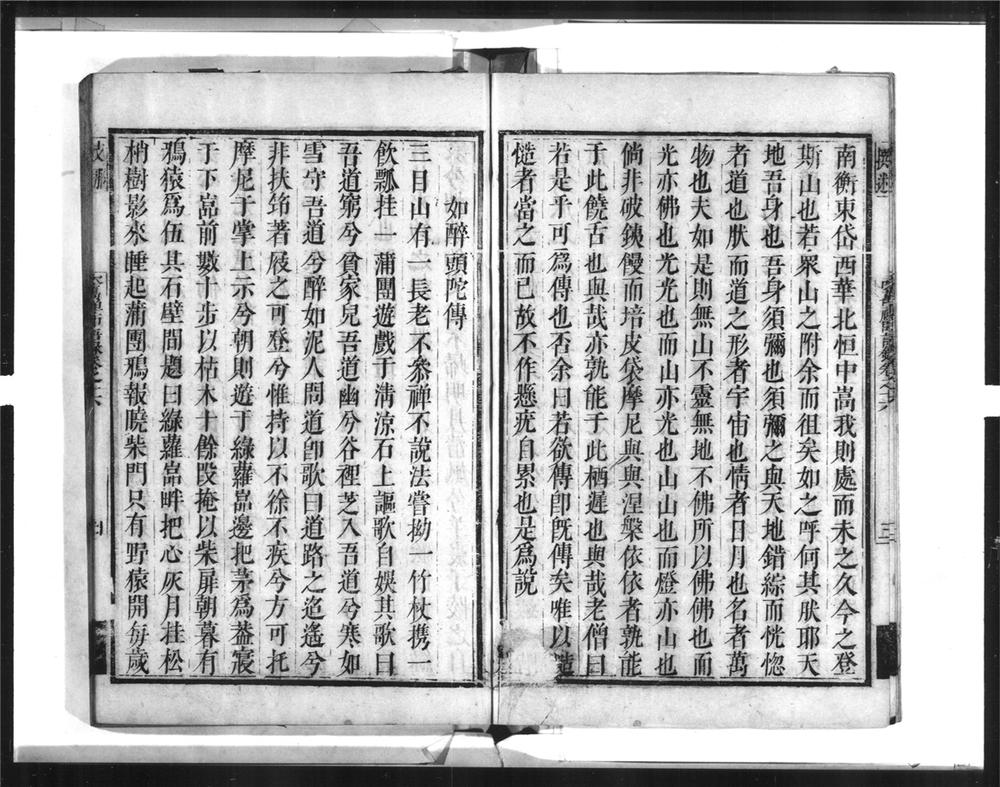 南衡東岱西華北恒中嵩我則處而未之久今之登
斯山也若眾山之附余而徂矣如之呼何其肰耶天
地吾身也吾身須彌也須彌之與天地錯綜而恍惚
者道也肰而道之形者宇宙也情者日月也名者萬
物也夫如是則無山不靈無地不佛所以佛佛也而
光亦佛也光光光也而山亦光也山山也而燈亦山也
倘非破銕饅而培皮袋摩尼與與涅槃依依者孰能
于此饒舌也與哉亦孰能于此栖遲也與哉老僧曰
若是乎可為傳也否余曰若欲傳卽旣傳矣唯以
慥者當之而已故不作懸疣自累也是為說
如醉頭陀傳
三目山有一長老不參禪不說法嘗拗一竹杖携一
飲瓢挂一蒲團遊戲于清涼石上謳歌自娛其歌曰
吾道窮兮貧家兒吾道幽兮谷裡芝入吾道兮寒如
雪守吾道兮醉如泥人問道卽歌曰道路之迢遙兮
非扶筇著屐之可登兮惟持以不徐不疾兮方可托
摩尼于掌上示兮朝則遊于綠蘿嵓邊把茅為葢寢
于下嵓前數十步以枯木十餘段掩以柴扉朝暮有
鴉猿為伍其石壁間題曰綠蘿嵓畔把心灰月挂松
梢樹影來睡起蒲團鴉報曉柴門只有野猿開每歲